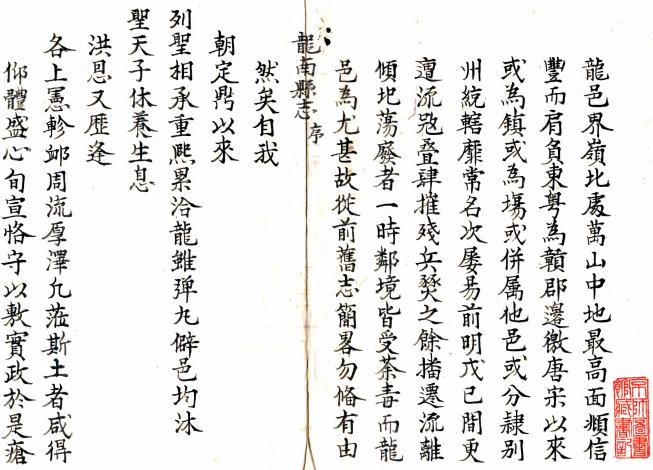 龍邑界嶺北處萬山中地最高面頫信
豐而肩負東粤為贛郡邊徼唐宋以來
或為鎮或為塲或併属他邑或分隷別
州統轄靡常名次屡易前明戊己間更
遭流冦叠肆摧殘兵燹之餘播遷流離
傾圯蕩廢者一時鄰境皆受荼毒而龍
邑為尤甚故從前舊志簡畧勿俻有由
龍南縣志 序
然矣自我
朝定鼎以來
列聖相承重熈累洽龍雖弹丸僻邑均沐
聖天子休養生息
洪恩又歷逢
各上憲軫卹周流厚澤凢蒞斯土者咸得
仰體盛心旬宣恪守以敷實政於是瘡